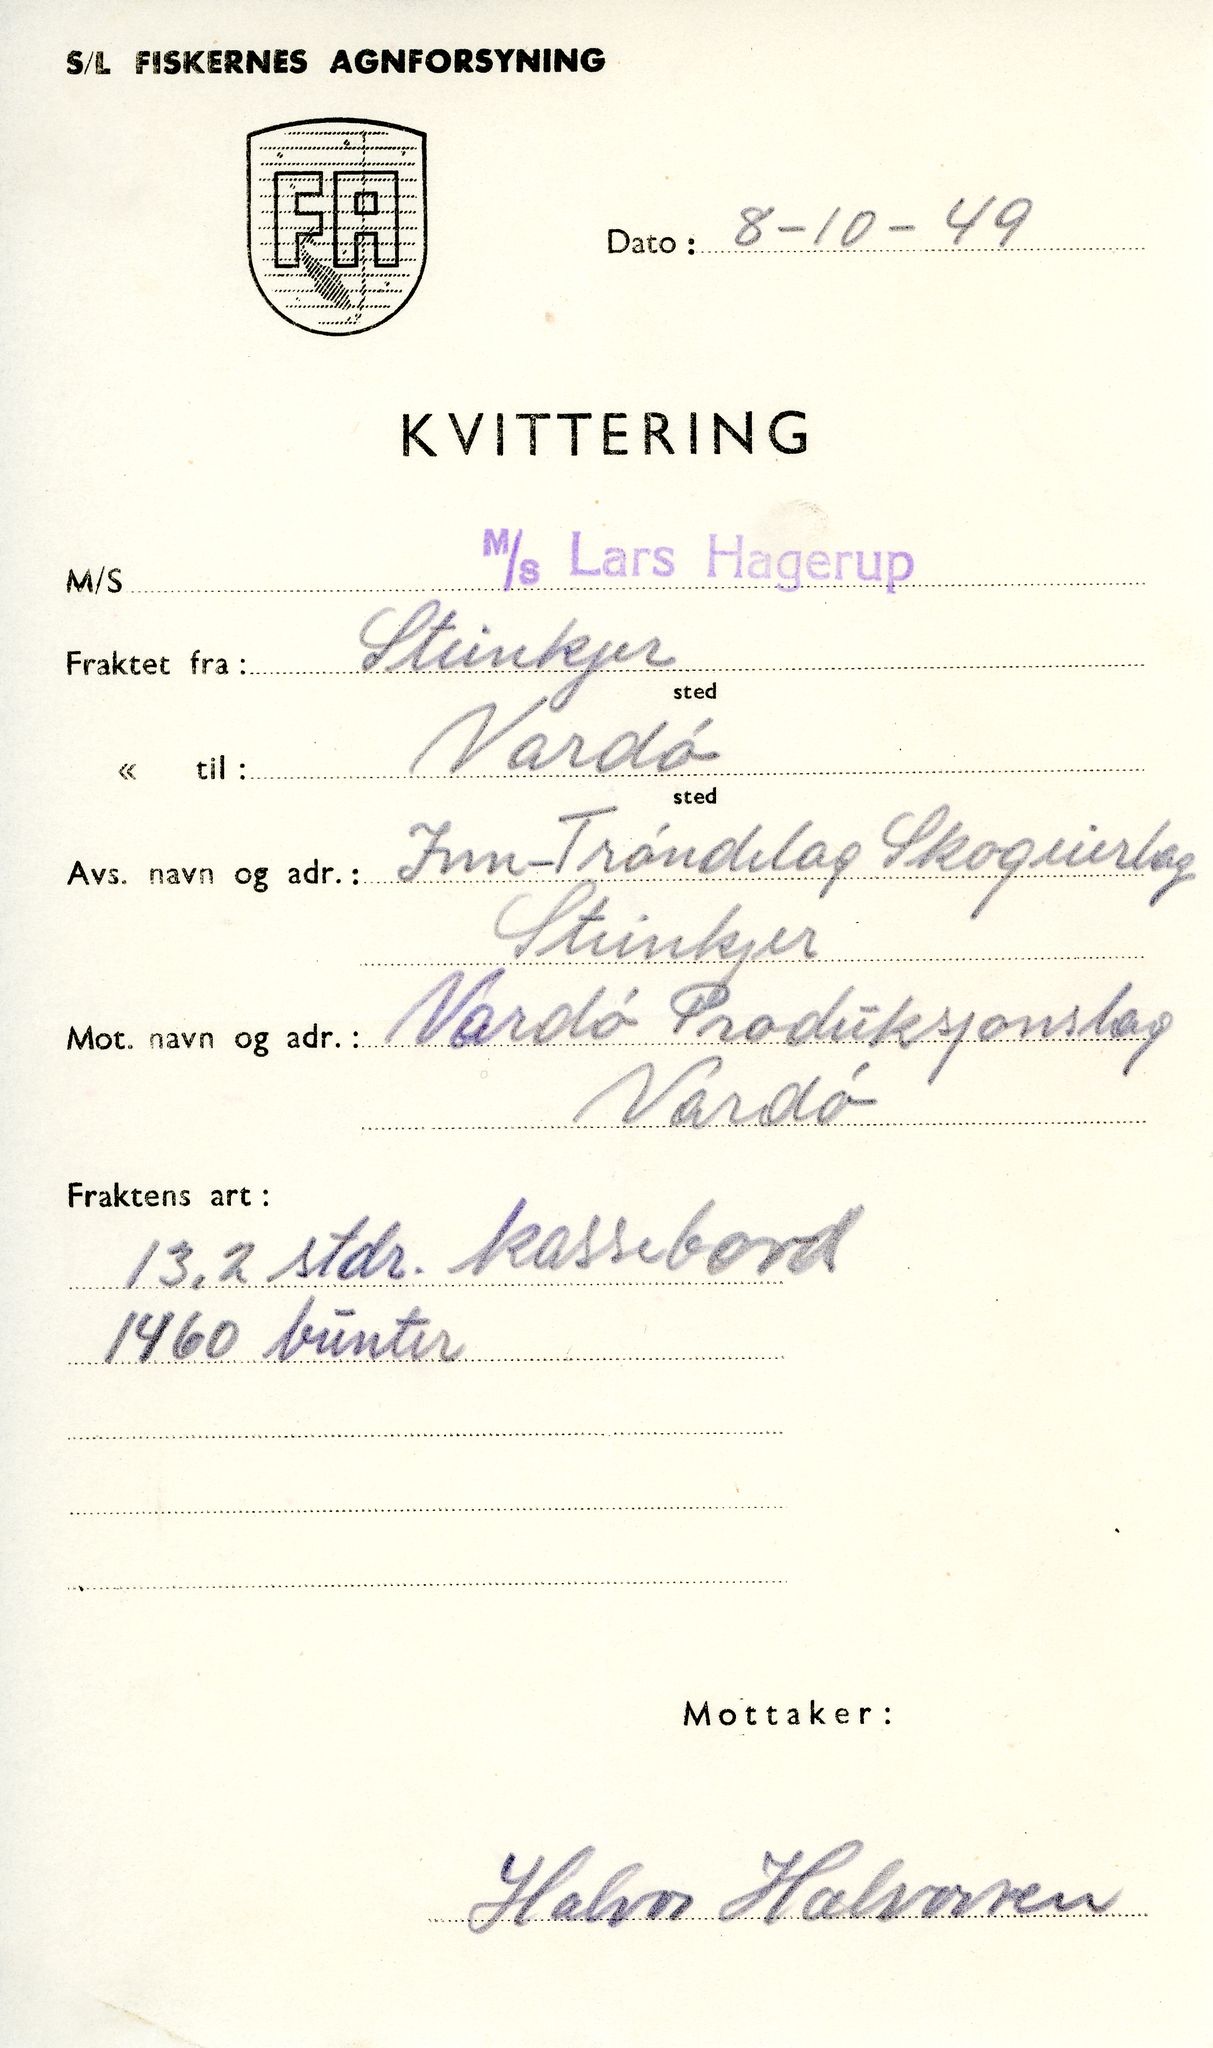 S/L FISKERNES AGNFORSYNING
FA
Dato: 8-10-49
KVITTERING
M/S M/S Lars Hagerup
Fraktet fra: Steinkjer
sted
« til: Vardø
sted
Avs. navn og adr.: Inn-Trøndelag Skogeierlag
Steinkjer
Mot. navn og adr.: Vardø Produksjonslag
Vardø
Fraktens art:
13,2 stdr. kassebord
1460 bunter
Mottaker:
Halvor Halvorsen